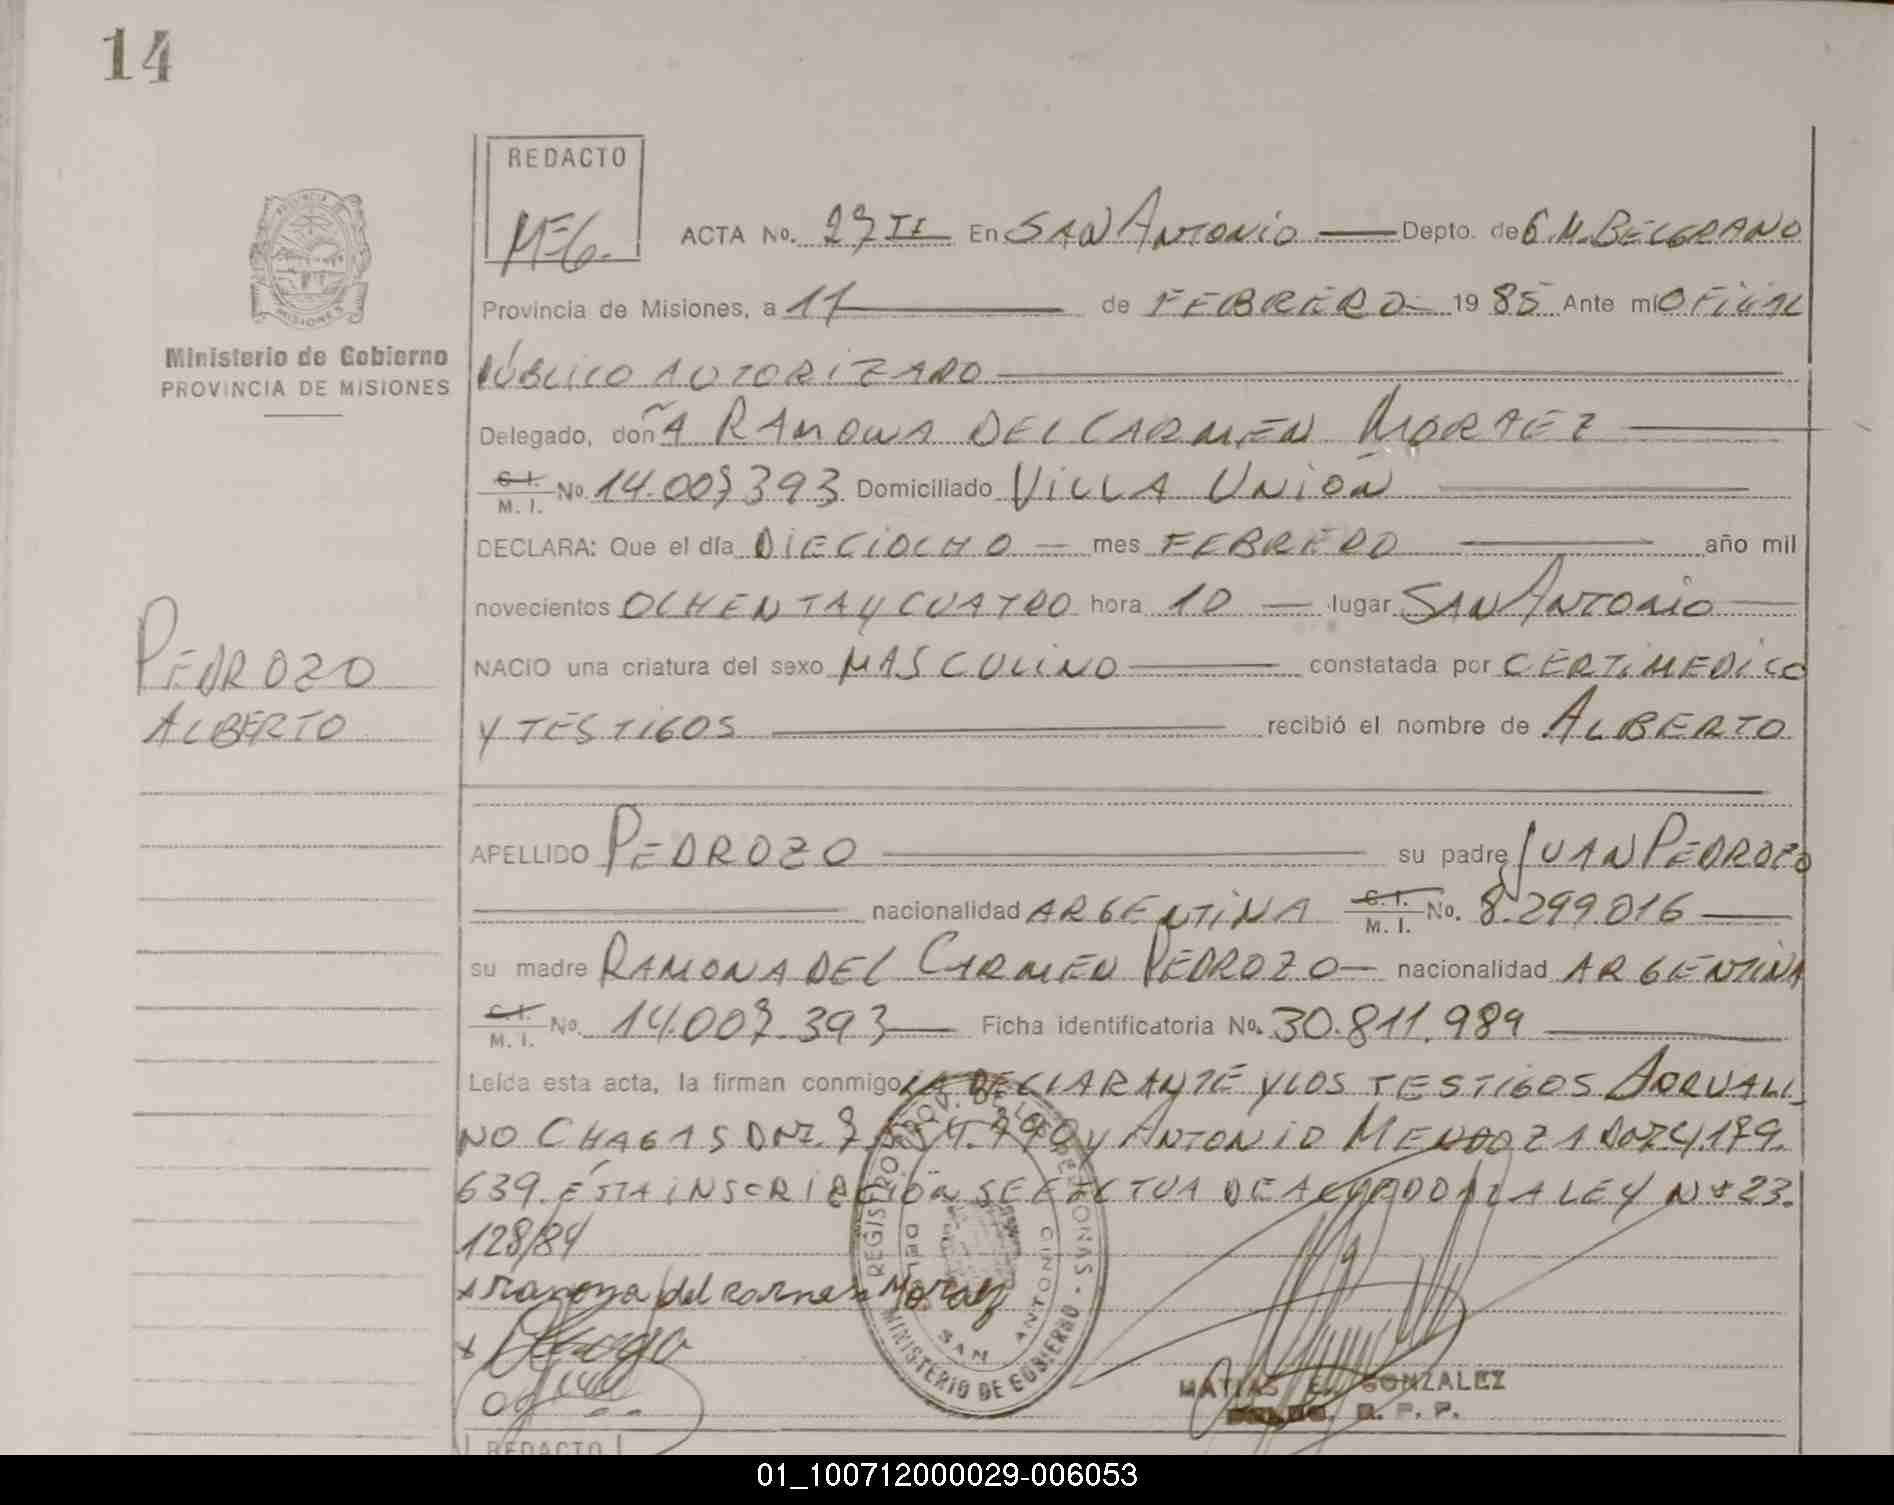 14
REDACTO
MEG.
ACTA No. 27 II En SAN ANTONIO Depto. de G.M. BELGRANO
Provincia de Misiones, a 11 de FEBRERO 1985 Ante mi OFICIAL
PÚBLICO AUTORIZADO
Ministerio de Gobierno
PROVINCIA DE MISIONES
Delegado, doñA RAMONA DEL CARMEN MORAEZ
C. I. M. I. No. 14.007393 Domiciliado VILLA UNIÓN
DECLARA: Que el día DIECIOCHO mes FEBRERO año mil
novecientos OCHENTA Y CUATRO hora 10 lugar SAN ANTONIO
NACIO una criatura del sexo MASCULINO constatada por CERTIMEDICO
Y TESTIGOS recibió el nombre de ALBERTO
PEDROZO
ALBERTO
APELLIDO PEDROZO su padre JUAN PEDROZO
nacionalidad ARGENTINA C. I. M. I. No. 8.299.016
su madre RAMONA DEL CARMEN PEDROZO nacionalidad ARGENTINA
C. I. M. I. No. 14.007.393 Ficha identificatoria No. 30.811.989
Leída esta acta, la firman conmigo LA DECLARANTE Y LOS TESTIGOS DORVALI_
NO CHAGAS DNI. 7. Y ANTONIO MENDOZA DNI 4.179.
639. ÉSTA INSCRIPCIÓN SE EFECTUA DE ACUERDO A LA LEY Nº 23.
128/84
x ramona del carmen Moraez
x
REGISTRO PROV. DE LAS PERSONAS - MINISTERIO DE GOBIERNO
SAN ANTONIO
MATIAS E. GONZALEZ
R. P. P.
REDACTO
01_100712000029-006053